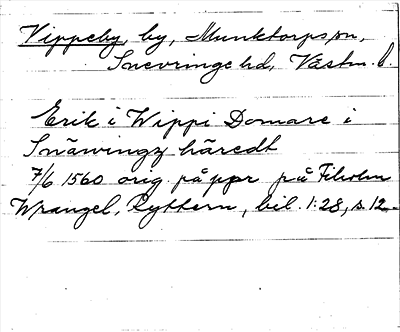 Vippeby, by, Munktorps sn,
Snevringe hd, Västm. l.
Erik i Wippi Domare i
Snäwingz häredt
7/6 1560 orig. på ppr på Fiholm
Wrangel, Ryttern, bil. 1:28, s. 12.